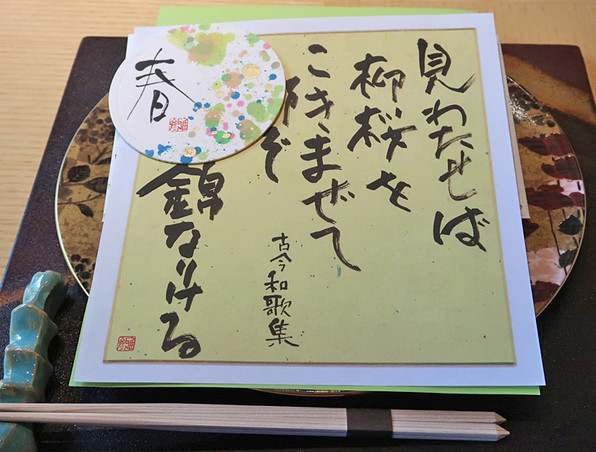 見わたせば
柳桜を
こきまぜて
ぞ
春
錦なりける
古今和歌集